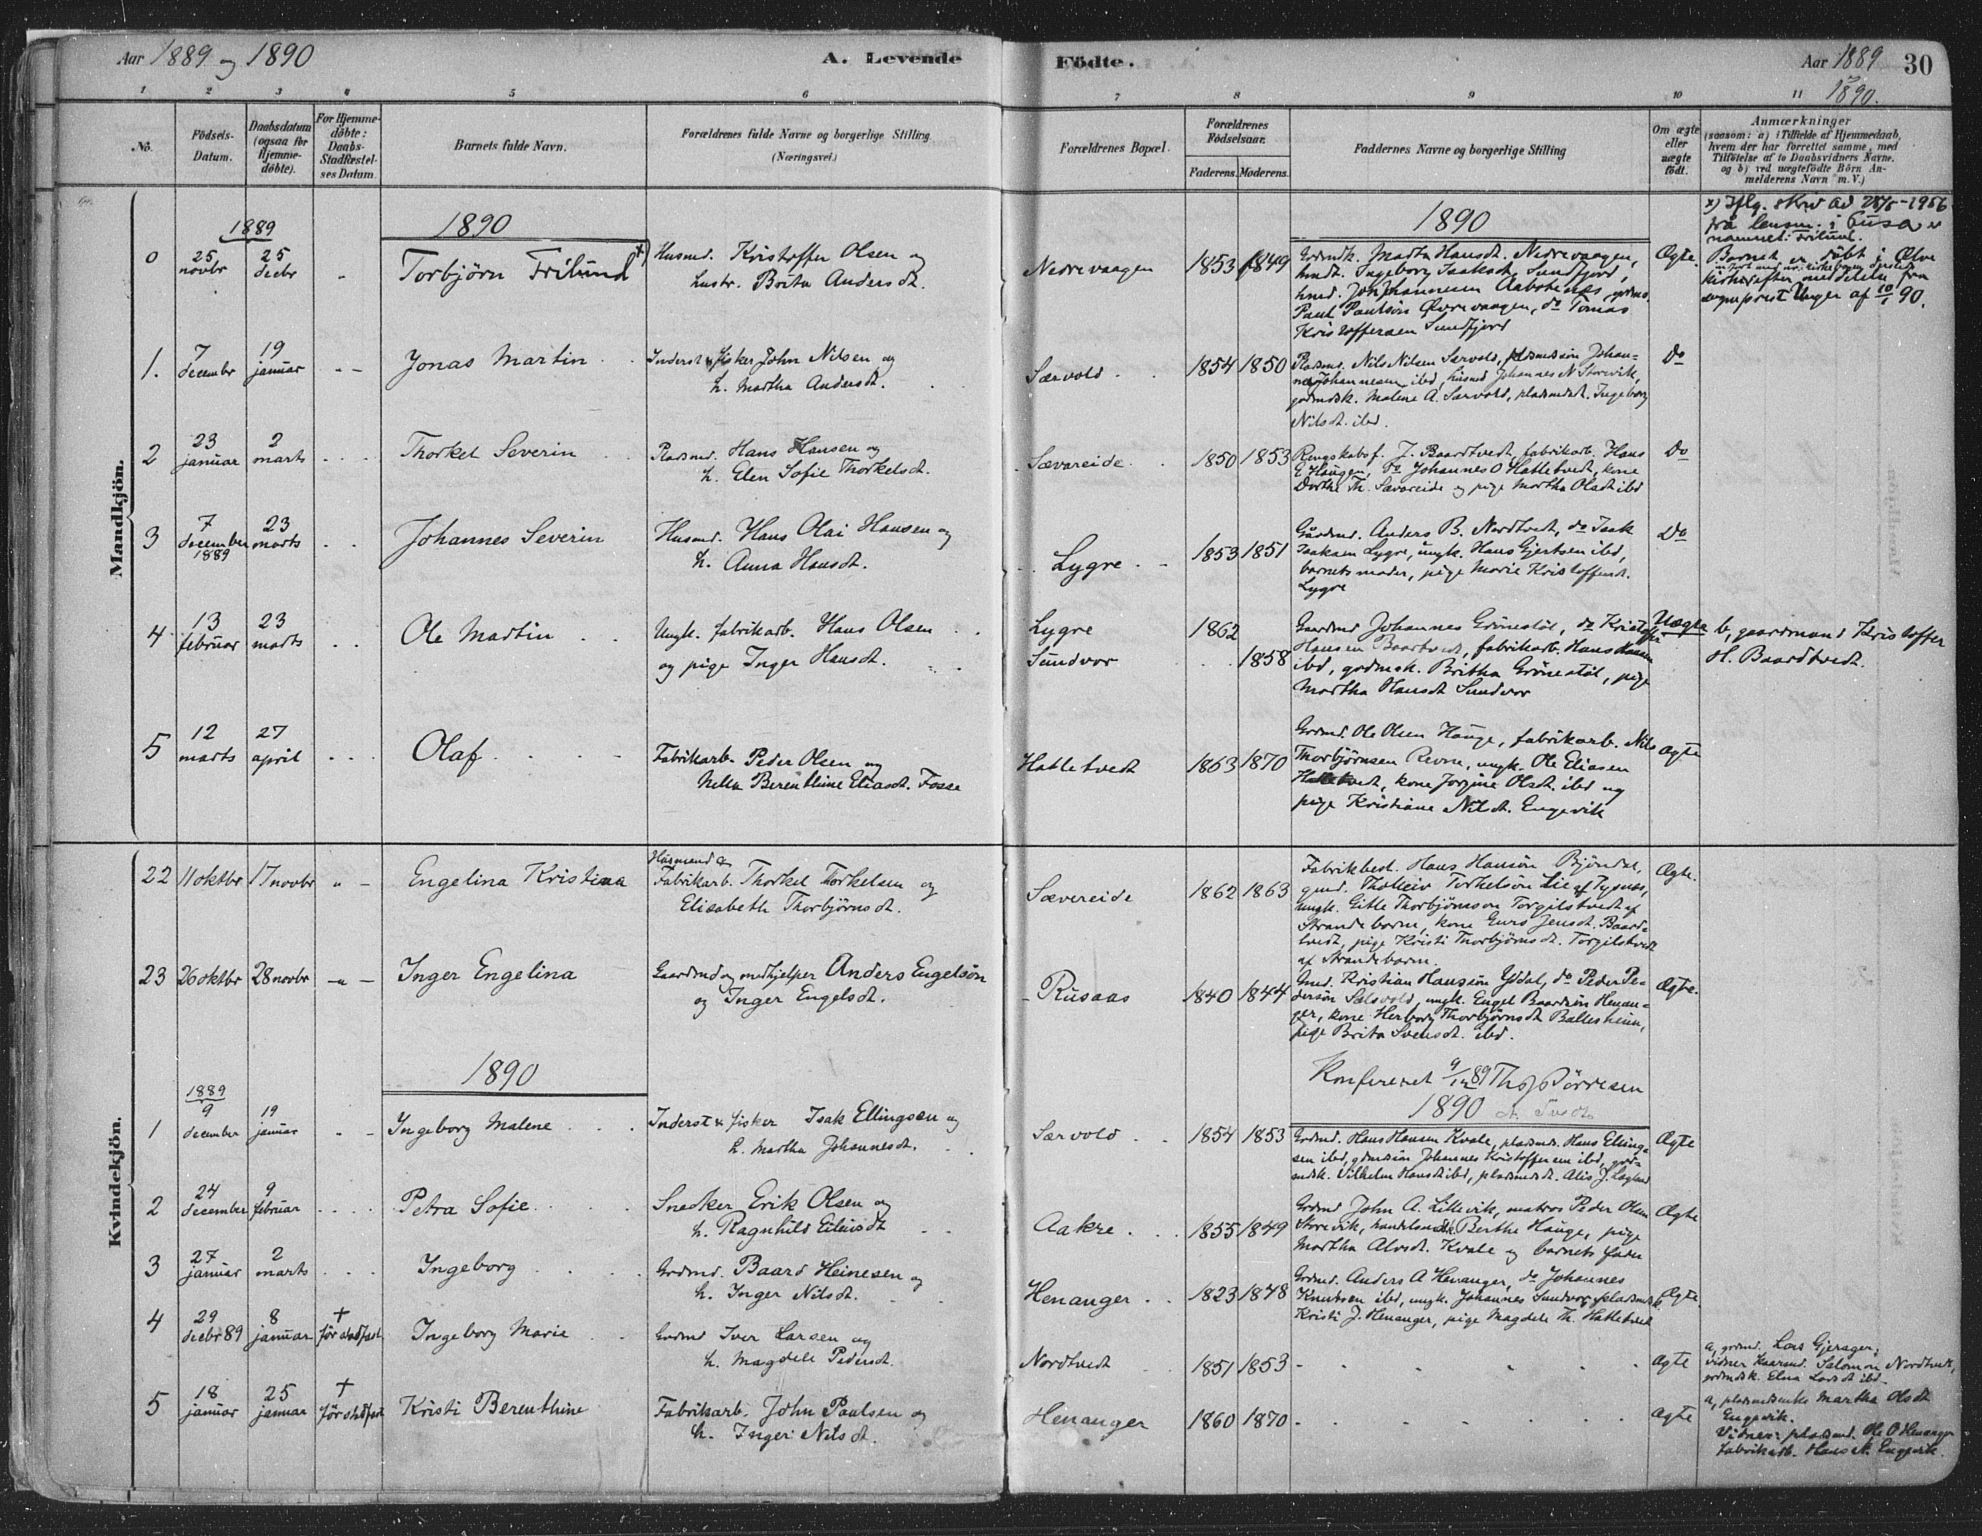 Aar 1889 og 1890
A. Levende
Födte.
Aar 1889 og 1890.
30
1 2 3 4 5 6 7 8 9 10 11
No.
Födsels-Datum.
Daabsdatum (ogsaa for Hjemme-döbte).
For Hjemme-döbte: Daabs-Stadfæstel-ses Datum.
Barnets fulde Navn.
Forældrenes fulde Navne og borgerlige Stilling (Næringsvei.)
Forældrenes Bopæl.
Forældrenes Födselsaar.
Faderens. Moderens.
Faddernes Navne og borgerlige Stilling
Om ægte eller uægte födt.
Anmærkninger
(saasom: a) i Tilfælde af Hjemmedaab, hvem der har forrettet samme, med Tilföielse af to Daabsvidners Navne, og b) ved uægtefödte Börn An-melderens Navn m. V.)
Mandkjön.
1889
1890
1890
0 25 novbr 25 decbr " Torbjörn Frilund x)
Husmd. Kristoffer Olsen og
hustr. Brita Andersdt.
Nedrevaagen 1853 1849
Grdmdk. Martha Hansdt. Nedrevaagen,
hmdt. Ingeborg Isaksdt. Sundfjord,
hmd. Jon Johannesen Aabotsnes, grdms.
Paul Paulsön Övrevaagen, do Tomas
Kristoffersen Sundfjord
Ægte.
x) Iflg. skriv ad 28/5-1956
frå lensm. i Fusa er
namnet: Frilund.
Barnet er döbt i Ölve
kirke efter meddelelse fra
sogneprest Unger af 10/1 90.
1. 7 december 19 januar Jonas Martin
Inderst & fisker John Nilsen og
h. Martha Andersdt.
Særvold 1854 1850
Pladsmd. Nils Nilsen Særvold, pladsmdsön Johan-
nes Johannesen ibd, husmd Johannes N Storevik,
grdmdsk. Malene A. Særvold, pladsmdsdt. Ingeborg
Nilsdt. ibd.
Do
2 23 januar 2 marts Thorkel Severin
Pladsmd. Hans Hansen og
h. Elen Sofie Thorkelsdt.
Sævareide 1850 1853
Rengskabsf. J. Baardtvedt, fabrikarb. Hans
E Haugen, do Johannes O Hatletvedt, kone
Dorthe Th. Sævareide og pige Martha Olsdt ibd
Do
3 7 december 1889 23 marts Johannes Severin
Husmd. Hans Olai Hansen og
h. Anna Hansdt.
Lygre 1853 1851
Gaardmd. Anders B. Nordtvedt, do Isak
Isaksen Lygre, ungk. Hans Gjertsen ibd,
barnets moder, pige Marie Kristoffersdt.
Lygre
Do
4 13 februar 23 marts Ole Martin
Ungk. fabrikarb. Hans Olsen
og pige Inger Hansdt.
Lygre 1862
Sundvor 1858
Gaardmd Johannes Grönestöl, do Kristoffer
Hansen Baardtvedt, fabrikarb. Hans Hansen
ibd, grdmdsk. Britha Grönestöl, pige
Martha Hansdt Sundvor
Uægte
b, gaardmand Kristoffer
H. Baardtvedt.
5 12 marts 27 april Olaf
Fabrikarb. Peder Olsen og
Nella Berenthine Eliasdt. Fosse
Hatletvedt 1863 1870
Grdmd. Ole Olsen Hauge, fabrikarb. Nils
Thorbjörnsen Revne, ungk. Ole Eliasen
Hatletvedt, kone Jorgine Olsdt. ibd og
pige Kristiane Nilsdt. Engevik
Ægte
Kvindekjön.
22 11 oktbr 17 novbr Engelina Kristina
Husmand &
Fabrikarb. Thorkel Torkelsen og
Elisabeth Thorbjörnsdt.
Sævereide 1862 1863
Fabrikbest. Hans Hansön Bjöndal,
gmd. Tholleiv Torkelsön Lie af Tysnes,
ungk. Gitle Thorbjörnson Torgilstvedt af
Strandebarm, kone Guro Jensdt. Baard-
tvedt, pige Kristi Thorbjörnsdt. Torgilstvedt
af Strandebarm.
Ægte.
23 26 oktbr 28 novbr Inger Engelina
Gaardmd og medhjelper Anders Engelsön
og Inger Engelsdt.
Rusaas 1840 1844
Gmd. Kristian Hansön Yddal, do Peder Pe-
dersön Sælsvold, ungk. Engel Baardsön Henan-
ger, kone Herborg Thorbjörnsdt Ballesheim,
pige Brita Svensdt. ibd.
Ægte.
1890
Konfereret 9/12 89 Ths Börresen
1890
1889
1 9 december 19 januar Ingeborg Malene
Inderst & fisker Isak Ellingsen og
h. Martha Johannesdt.
Særvold 1854 1853
Grdmd. Hans Hansen Kvale, pladsmds. Hans Elling-
sen ibd, gdmdsön Johannes Kristoffersen ibd, grd-
mdsk. Vilhelm Hansdt ibd, pladsmdsdt. Alis J. Løgland
Ægte
2 24 december 9 februar Petra Sofie
Snedker Erik Olsen og
h. Ragnhild Eilivsdt
Aakre 1855 1849
Grdmd John A. Lillevik, matros Peder Olsen
Storevik, handelsmdsk. Berthe Hauge, pige
Martha Alvsdt. Kvale og barnets fader
Ægte
3 27 januar 2 marts Ingeborg
Grdmd. Baard Heinesen og
h. Inger Nilsdt.
Henanger 1823 1848
Grdmd. Anders A Henanger, do Johannes
Knutsen ibd, ungk. Johannes Sundvor, pladsmdsk
Kristi J. Henanger, pige Magdele Th. Hatletvedt
Ægte.
4 29 decbr 89 8 januar † för stadfæst Ingeborg Marie
Grdmd Iver Larsen og
h. Magdele Pedersdt.
Nordtvedt 1851 1853
Ægte
a, grdmd. Lars Gjerager;
vidner Haarmd. Salomon Nordtvedt,
grdmdsk. Elna Larsdt ibd.
5 18 januar 25 januar † för stadfæst Kristi Berenthine
Fabrikarb. John Paulsen og
h. Inger Nilsdt.
Henanger 1860 1870
Ægte
a, pladsmdsenke Martha Olsdt
Engevik.
Vidner: pladsmd. Ole O Henanger
fabrikarb. Hans N. Engevik.